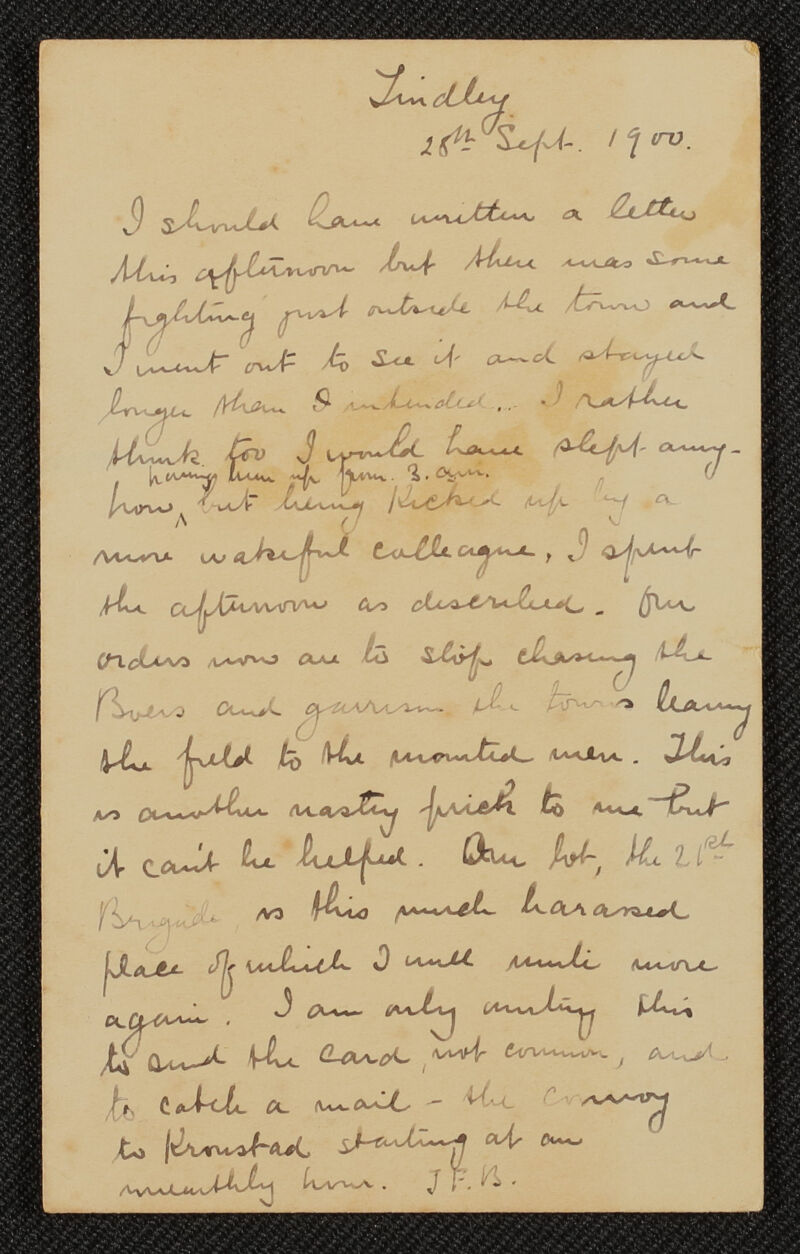 Lindley
28th Sept. 1900.
I should have written a letter
this afternoon but there was some
fighting just outside the town and
I went out to see it and stayed
longer than I intended.. I rather
think too I would have slept any-
having been up from 3. a.m.
how, but being kicked up by a
more wakeful colleague, I spent
the afternoon as described. Our
orders now are to stop chasing the
Boers and garrison the towns leaving
the field to the mounted men. This
is another nasty prick to me but
it can't be helped. Our lot, the 21st
Brigade, is this much harassed
place of which I will write more
again. I am only writing this
to send the card, not common, and
to catch a mail - the convoy
to Kronstad starting at an
unearthly hour. J F. B.